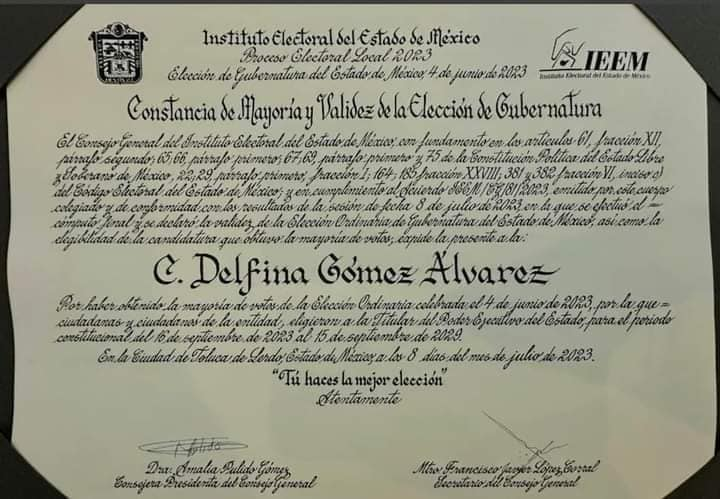 Instituto Electoral del Estado de México
Proceso Electoral Local 2023
Elección de Gubernatura del Estado de México, 4 de junio de 2023
IEEM
Instituto Electoral del Estado de México
Constancia de Mayoría y Validez de la Elección de Gubernatura
El Consejo General del Instituto Electoral del Estado de México, con fundamento en los artículos 61, fracción XII,
párrafo segundo; 65, 66, párrafo primero; 67, 69, párrafo primero y 75 de la Constitución Política del Estado Libre
y Soberano de México; 22, 29, párrafo primero, fracción I; 164; 185, fracción XXVIII; 381 y 382, fracción VI, inciso c)
del Código Electoral del Estado de México; y en cumplimiento al Acuerdo IEEM/CG/81/2023, emitido por este cuerpo
colegiado y de conformidad con los resultados de la sesión de fecha 8 de julio de 2023, en la que se efectuó el =
cómputo final y se declaró la validez de la Elección Ordinaria de Gubernatura del Estado de México, así como la
elegibilidad de la candidatura que obtuvo la mayoría de votos, expide la presente a la:
C. Delfina Gómez Álvarez
Por haber obtenido la mayoría de votos de la Elección Ordinaria celebrada el 4 de junio de 2023, por la que =
ciudadanas y ciudadanos de la entidad, eligieron a la Titular del Poder Ejecutivo del Estado, para el periodo
constitucional del 16 de septiembre de 2023 al 15 de septiembre de 2029.
En la Ciudad de Toluca de Lerdo, Estado de México, a los 8 días del mes de julio de 2023.
"Tú haces la mejor elección"
Atentamente
Dra. Amalia Pulido Gómez
Consejera Presidenta del Consejo General
Mtro. Francisco Javier López Corral
Secretario del Consejo General